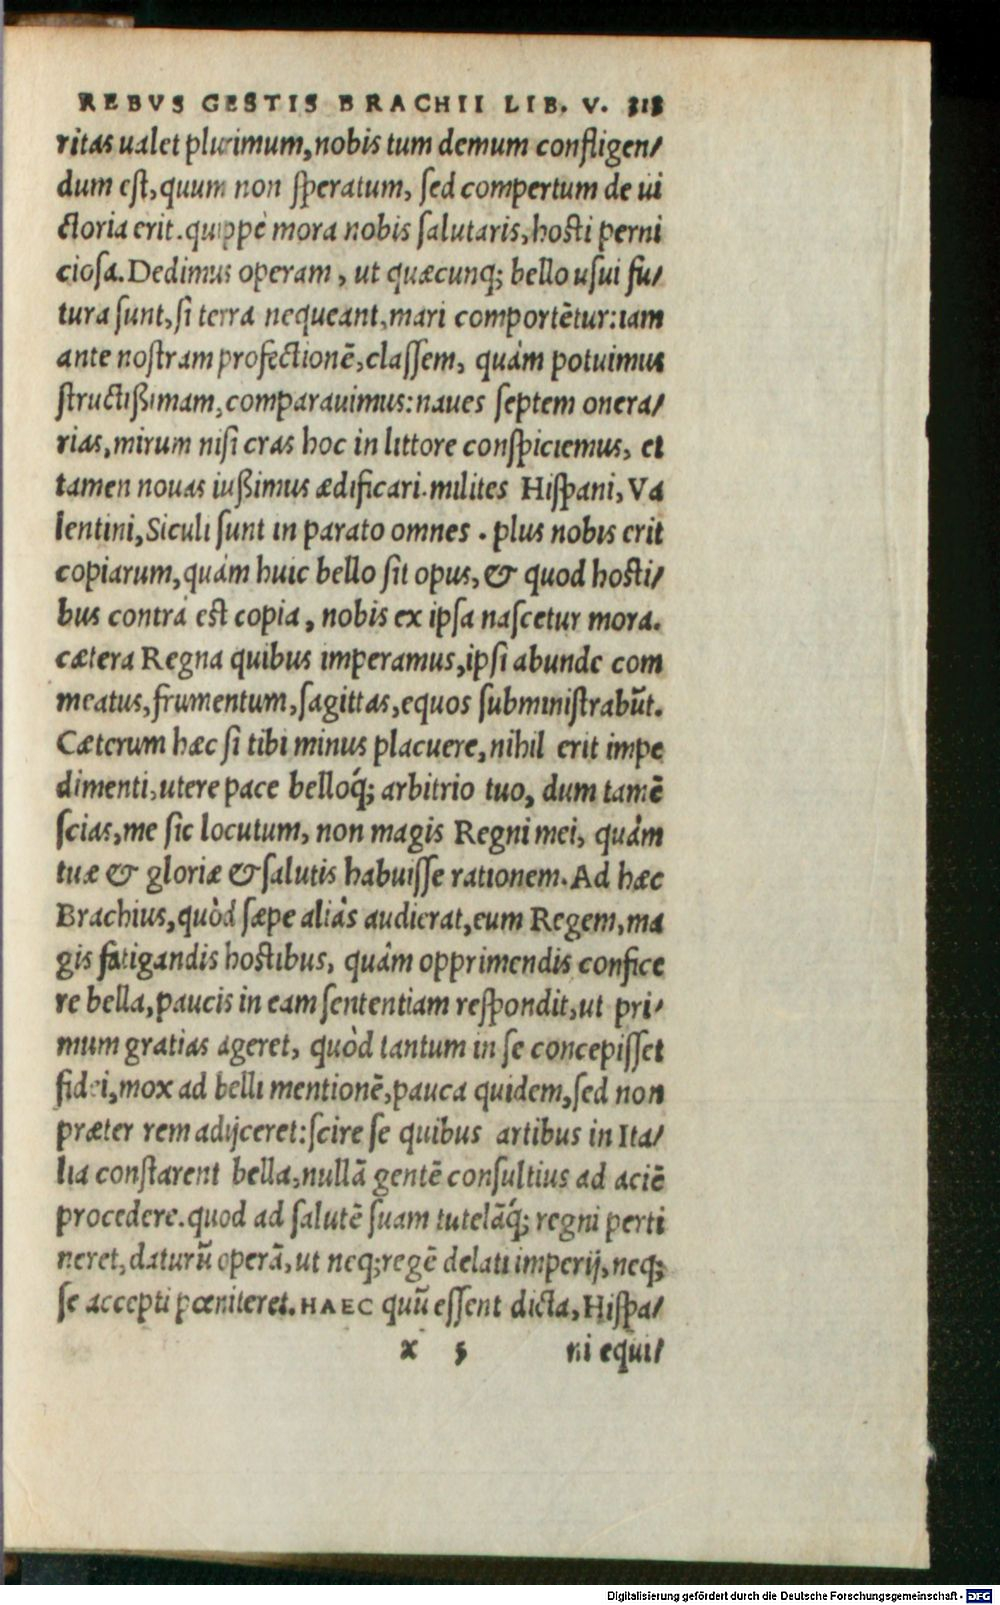 REBVS GESTIS BRACHII LIB. V. 313
ritas ualet plurimum, nobis tum demum confligen/
dum est, quum non speratum, sed compertum de ui
ctoria erit. quippe mora nobis salutaris, hosti perni
ciosa. Dedimus operam, ut quæcunq; bello usui fu/
tura sunt, si terra nequeant, mari comportẽtur: iam
ante nostram profectionẽ, classem, quàm potuimus
structißimam, comparauimus: naues septem onera/
rias, mirum nisi cras hoc in littore conspiciemus, et
tamen nouas iußimus ædificari. milites Hispani, Va
lentini, Siculi sunt in parato omnes. plus nobis erit
copiarum, quàm huic bello sit opus, & quod hosti/
bus contrà est copia, nobis ex ipsa nascetur mora.
cætera Regna quibus imperamus, ipsi abunde com
meatus, frumentum, sagittas, equos subministrabũt.
Cæterum hæc si tibi minus placuere, nihil erit impe
dimenti, utere pace belloq́; arbitrio tuo, dum tamẽ
scias, me sic locutum, non magis Regni mei, quàm
tuæ & gloriæ & salutis habuisse rationem. Ad hæc
Brachius, quòd sæpe aliàs audierat, eum Regem, ma
gis fatigandis hostibus, quàm opprimendis confice
re bella, paucis in eam sententiam respondit, ut pri/
mum gratias ageret, quòd tantum in se concepisset
fidei, mox ad belli mentionẽ, pauca quidem, sed non
præter rem adijceret: scire se quibus artibus in Ita/
lia constarent bella, nullã gentẽ consultius ad aciẽ
procedere. quod ad salutẽ suam tutelãq́; regni perti
neret, daturũ operã, ut neq; regẽ delati imperij, neq;
se accepti pœniteret. HAEC quũ essent dicta, Hispa/
x 5 ni equi/
Digitalisierung gefördert durch die Deutsche Forschungsgemeinschaft - DFG